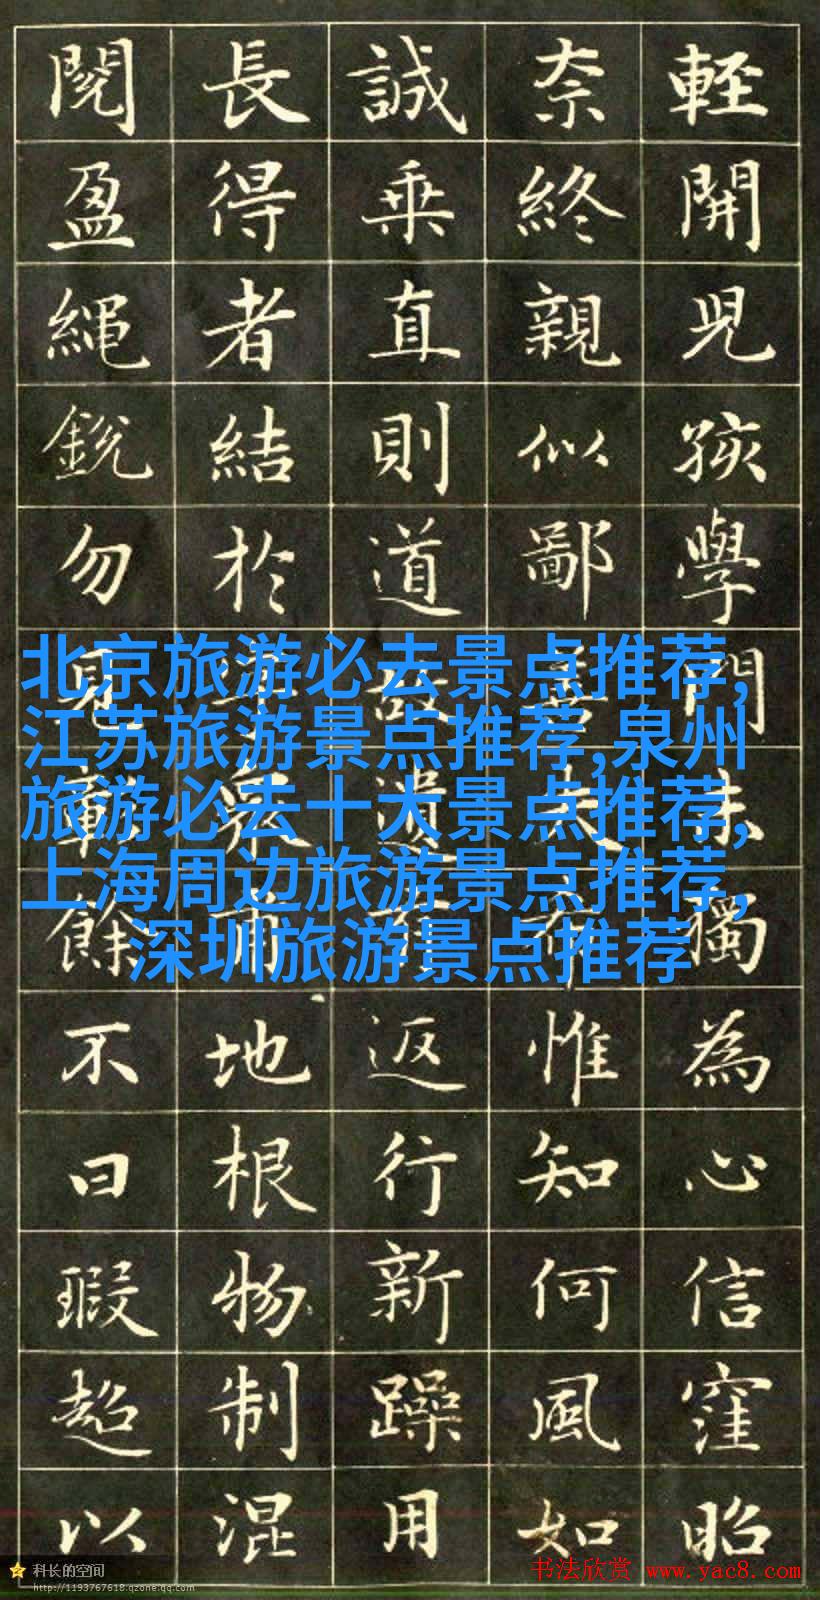 開兒孩學門未獨為心信窪昭
奈終親似鄙夫惟知何風如
誠乗直則道故返行新躁用
長得者結於地根物制混
閲盈繩銳勿見餘不曰瑕超以
北京旅游必去景点推荐,
江苏旅游景点推荐,泉州
旅游必去十大景点推荐,
上海周边旅游景点推荐,
深圳旅游景点推荐
科长的空间
http://1193767618.qzone.qq.com
书法欣赏 www.yac8.com